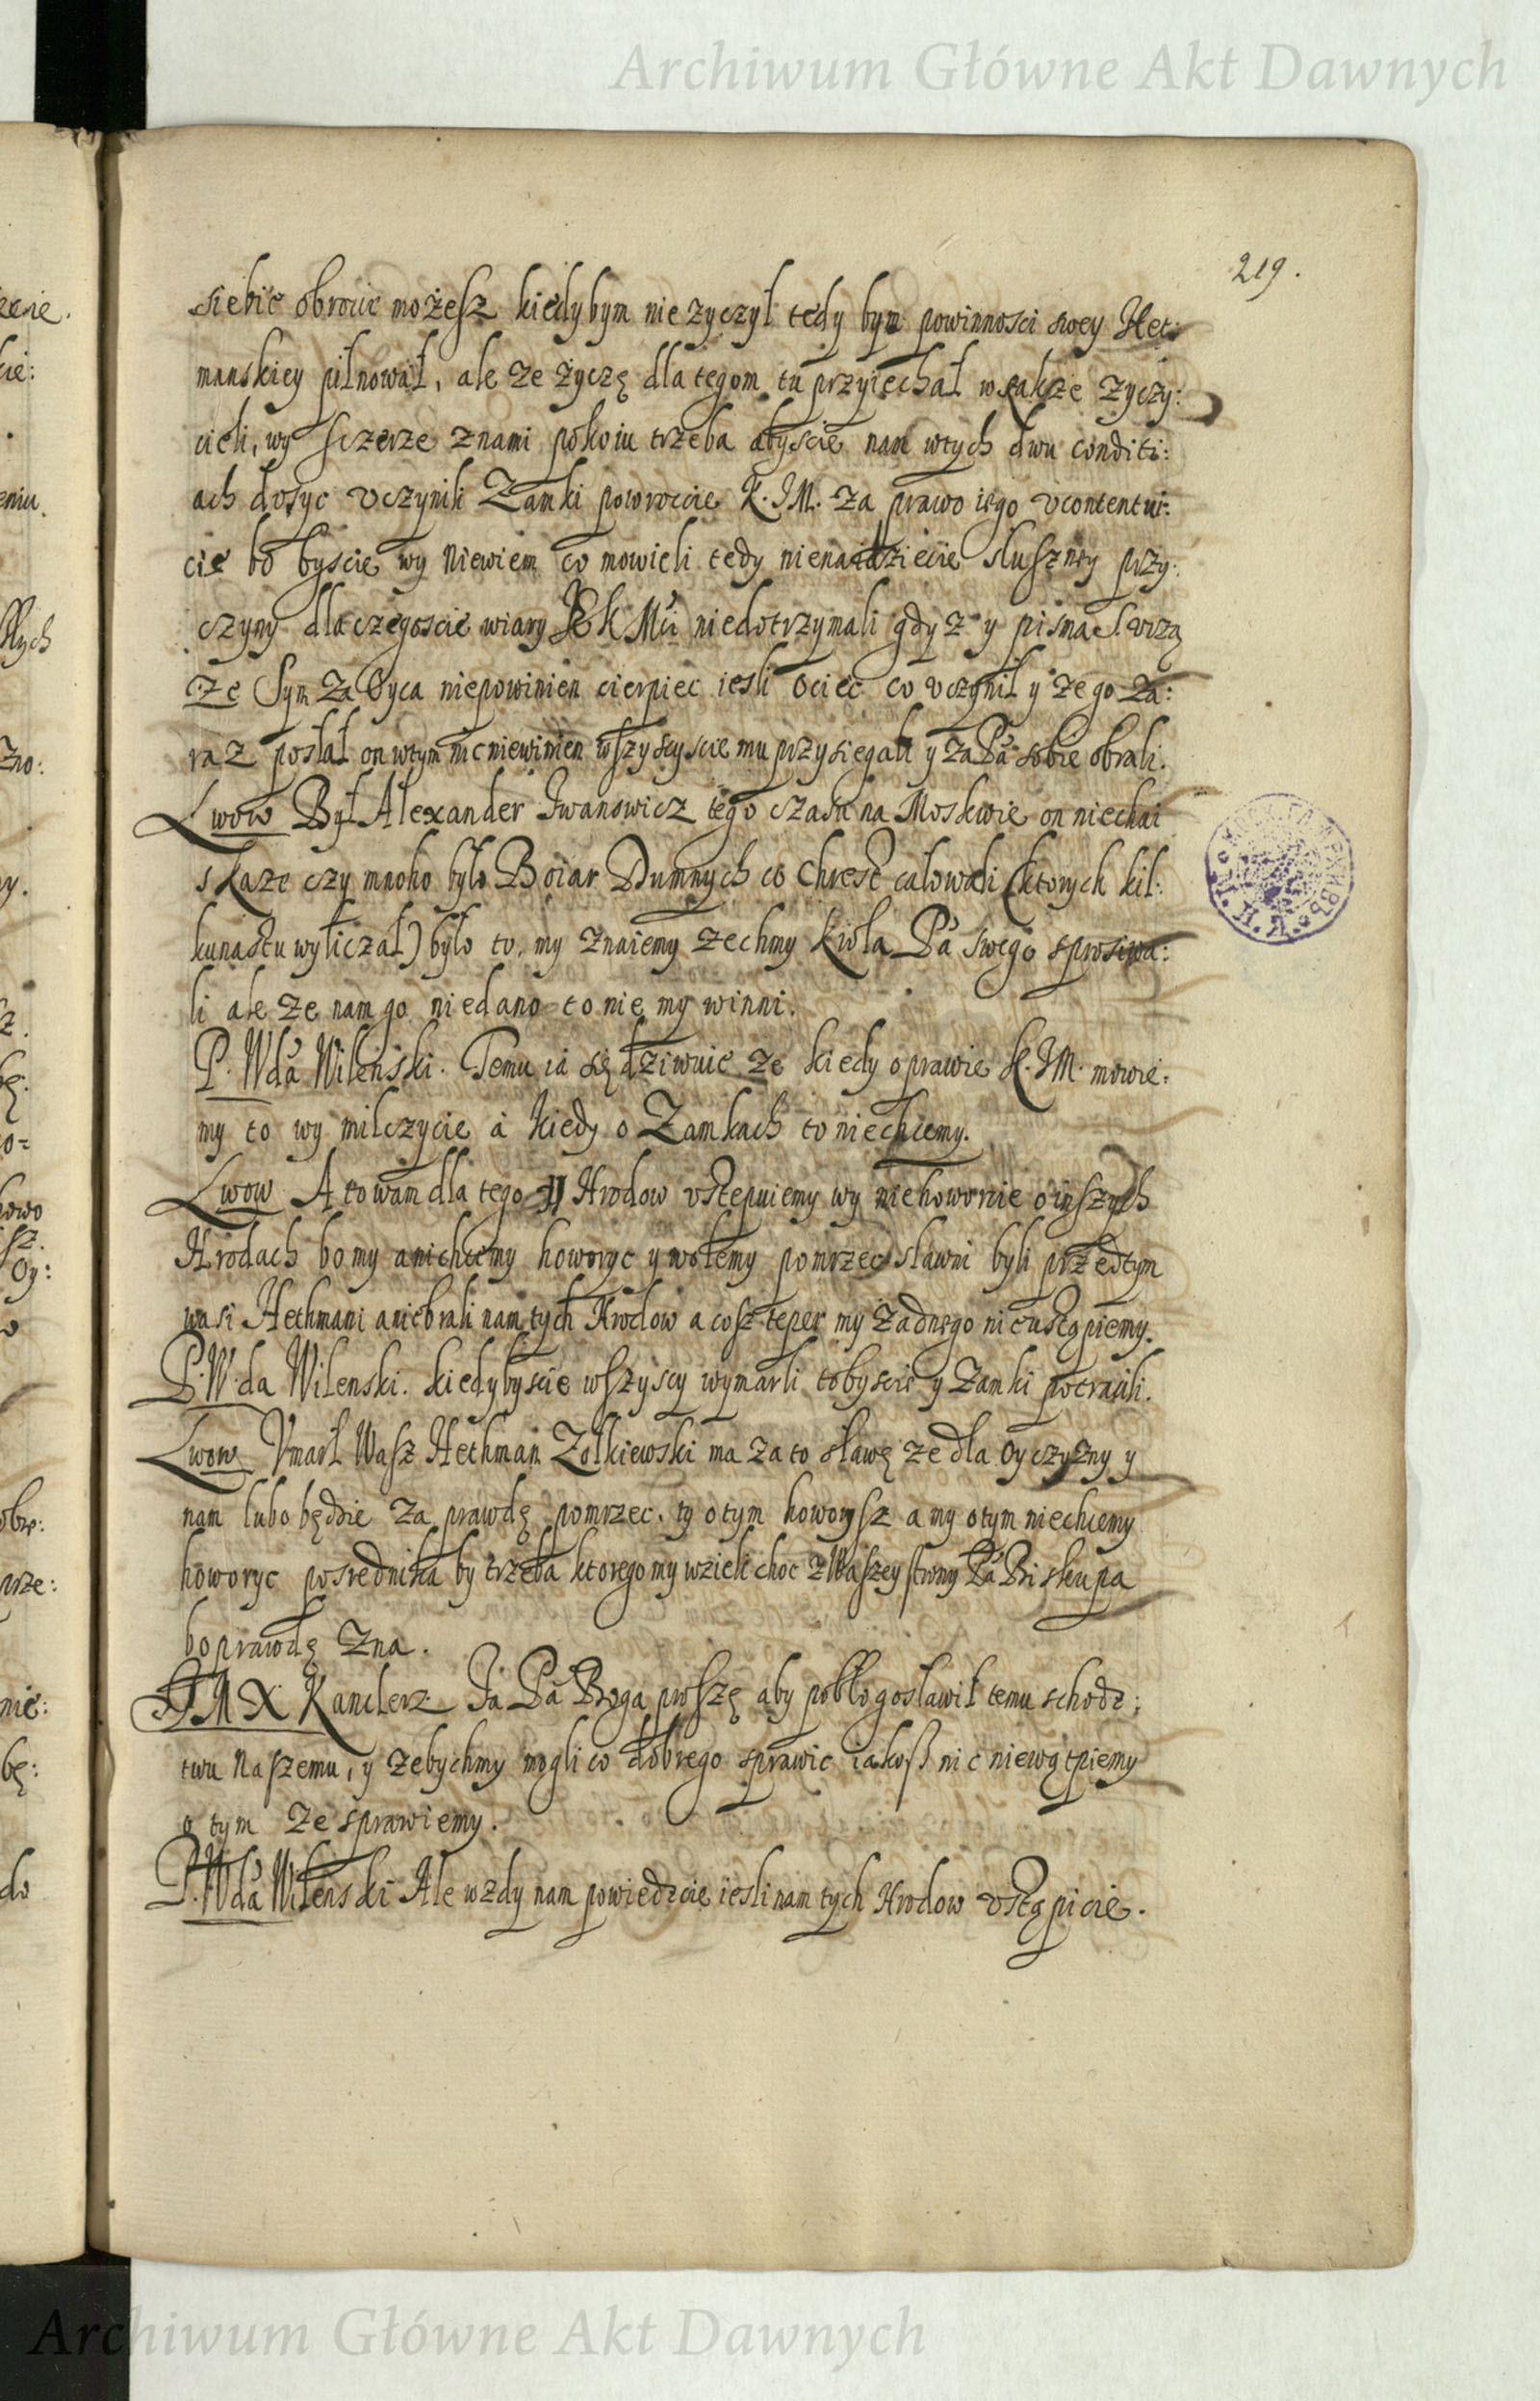 Archiwum Główne Akt Dawnych
219.
siebie obrocic możesz kiedybym nie zyczył tedy bym powinnosci swey Het:
manskiey pilnował, ale ze życzę dla tegom tu przyiechał wszakze zyczy:
cieli, wy sczerze znami pokoiu trzeba abyscie nam wtych dwu conditi:
ach dosyc vczynili Zamki powroccie K. JM. za prawo iego vcontentui:
cie bo byscie wy niewiem co mowieli tedy nienaidziecie słuszney przy:
czyny dla czegoscie wiary JE K Mci niedotrzymali gdyz y pisma S. vczą
ze Syn za Oyca niepowinien cierpiec iesli Ociec co vczynił y ze go za:
raz posłał on wtym nic niewinien wszyscyscie mu przysiegali y za Pa sobie obrali.
Lwow Był Alexander Iwanowicz tego czasu na Moskwie on niechai
skaze czy mnoho było Boiar Dumnych co Chrest całowali (ktorych kil:
kunastu wyliczał) było to, my znaiemy zechmy Krola Pa swego sprosiwa:
li ale ze nam go niedano to nie my winni.
P. Wda Wilenski. Temu ia się dziwuie ze kiedy o prawie K. JM. mowie:
my to wy milczycie à kiedy o Zamkach to niechcemy.
Lwow A to wam dla tego Hrodow vstepuiemy wy niehoworcie o inszych
Hrodach bo my ani chcemy howoryc y wolemy pomrzec sławni byli przedtym
wasi Hethmani a niebrali nam tych Hrodow a cosz teper my żadnego nieustąpiemy.
P. W.da Wilenski. kiedybyscie wszyscy wymarli tobyscie y Zamki potracili.
Lwow Vmarł Wasz Hethman Zołkiewski ma za to sławę ze dla Oyczyzny y
nam lubo będzie za prawdę pomrzec. ty otym howorysz a my otym niechcemy
howoryc posrednika by trzeba ktorego my wzieli choc z Waszey strony Pa Biskupa
bo prawdę zna.
JM X Kanclerz Ja Pa Boga proszę aby pobłogosławił temu schodz:
twu Naszemu, y zebychmy mogli co dobrego sprawic iakosz nic niewątpiemy
o tym ze sprawiemy.
P. Wda Wilenski Ale wzdy nam powiedzcie iesli nam tych Hrodow vstąpicie.
Archiwum Główne Akt Dawnych